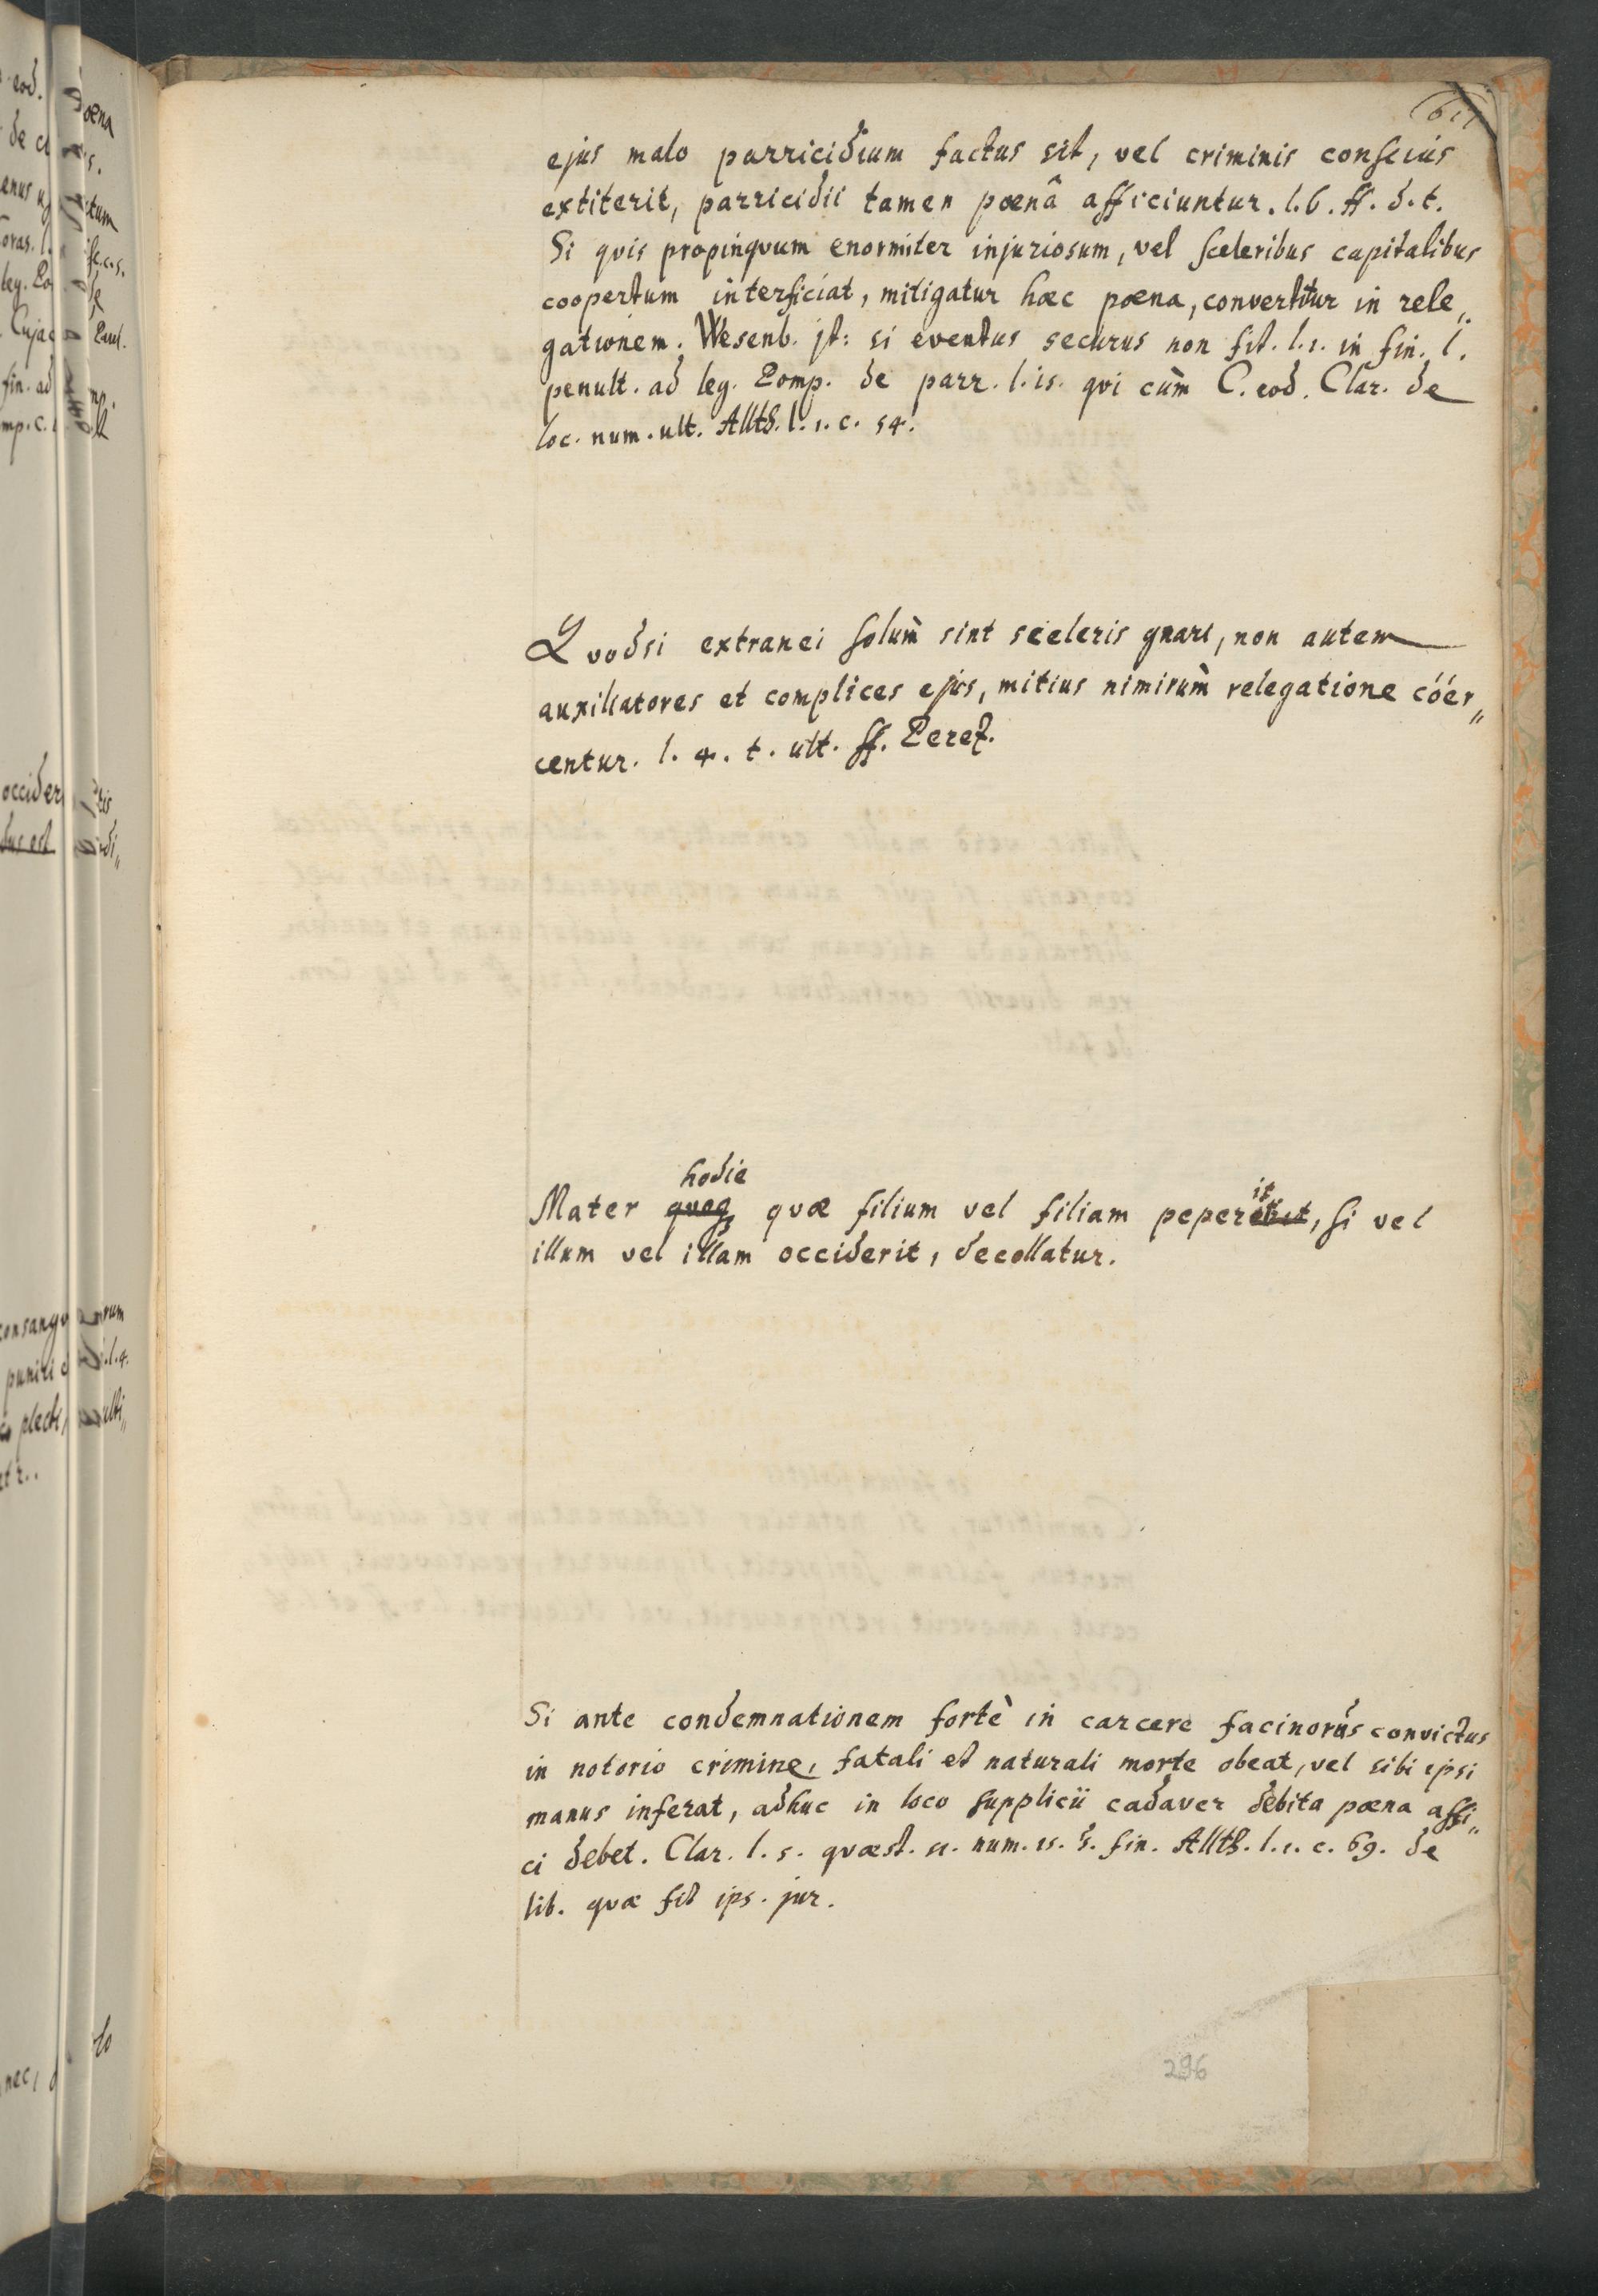 ejus malo parricidium factus sit, vel criminis conscius
extiterit, parricidii tamen pœnâ afficiuntur. l. 6. ff. d. t.
Si quis propinquum enormiter injuriosum, vel sceleribus capitalibus
coopertum interficiat, mitigatur hæc pœna, convertitur in rele„
gationem. Wesenb. jt: si eventus securus non sit. l. 1. in fin. l.
penult. ad leg. Pomp. de parr. l. is. qui cùm C. eod. Clar. de
loc. num. ult. Allth. l. 1. c. 54.
Quodsi extranei solùm sint sceleris gnari, non autem
auxiliatores et complices ejus, mitius nimirùm relegatione cóér„
centur. l. 4. t. ult. ff. Perez.
hodie
Mater quoq quæ filium vel filiam peperit, si vel
illum vel illam occiderit, decollatur.
Si ante condemnationem fortè in carcere facinorus convictus
in notorio crimine, fatali et naturali morte obeat, vel sibi ipsi
manus inferat, adhuc in loco supplicii cadaver debita pœna affi„
ci debet. Clar. l. 5. quæst. 51. num. 15. §. fin. Allth. l. 1. c. 69. de
lib. quæ fit ips. jur.
296